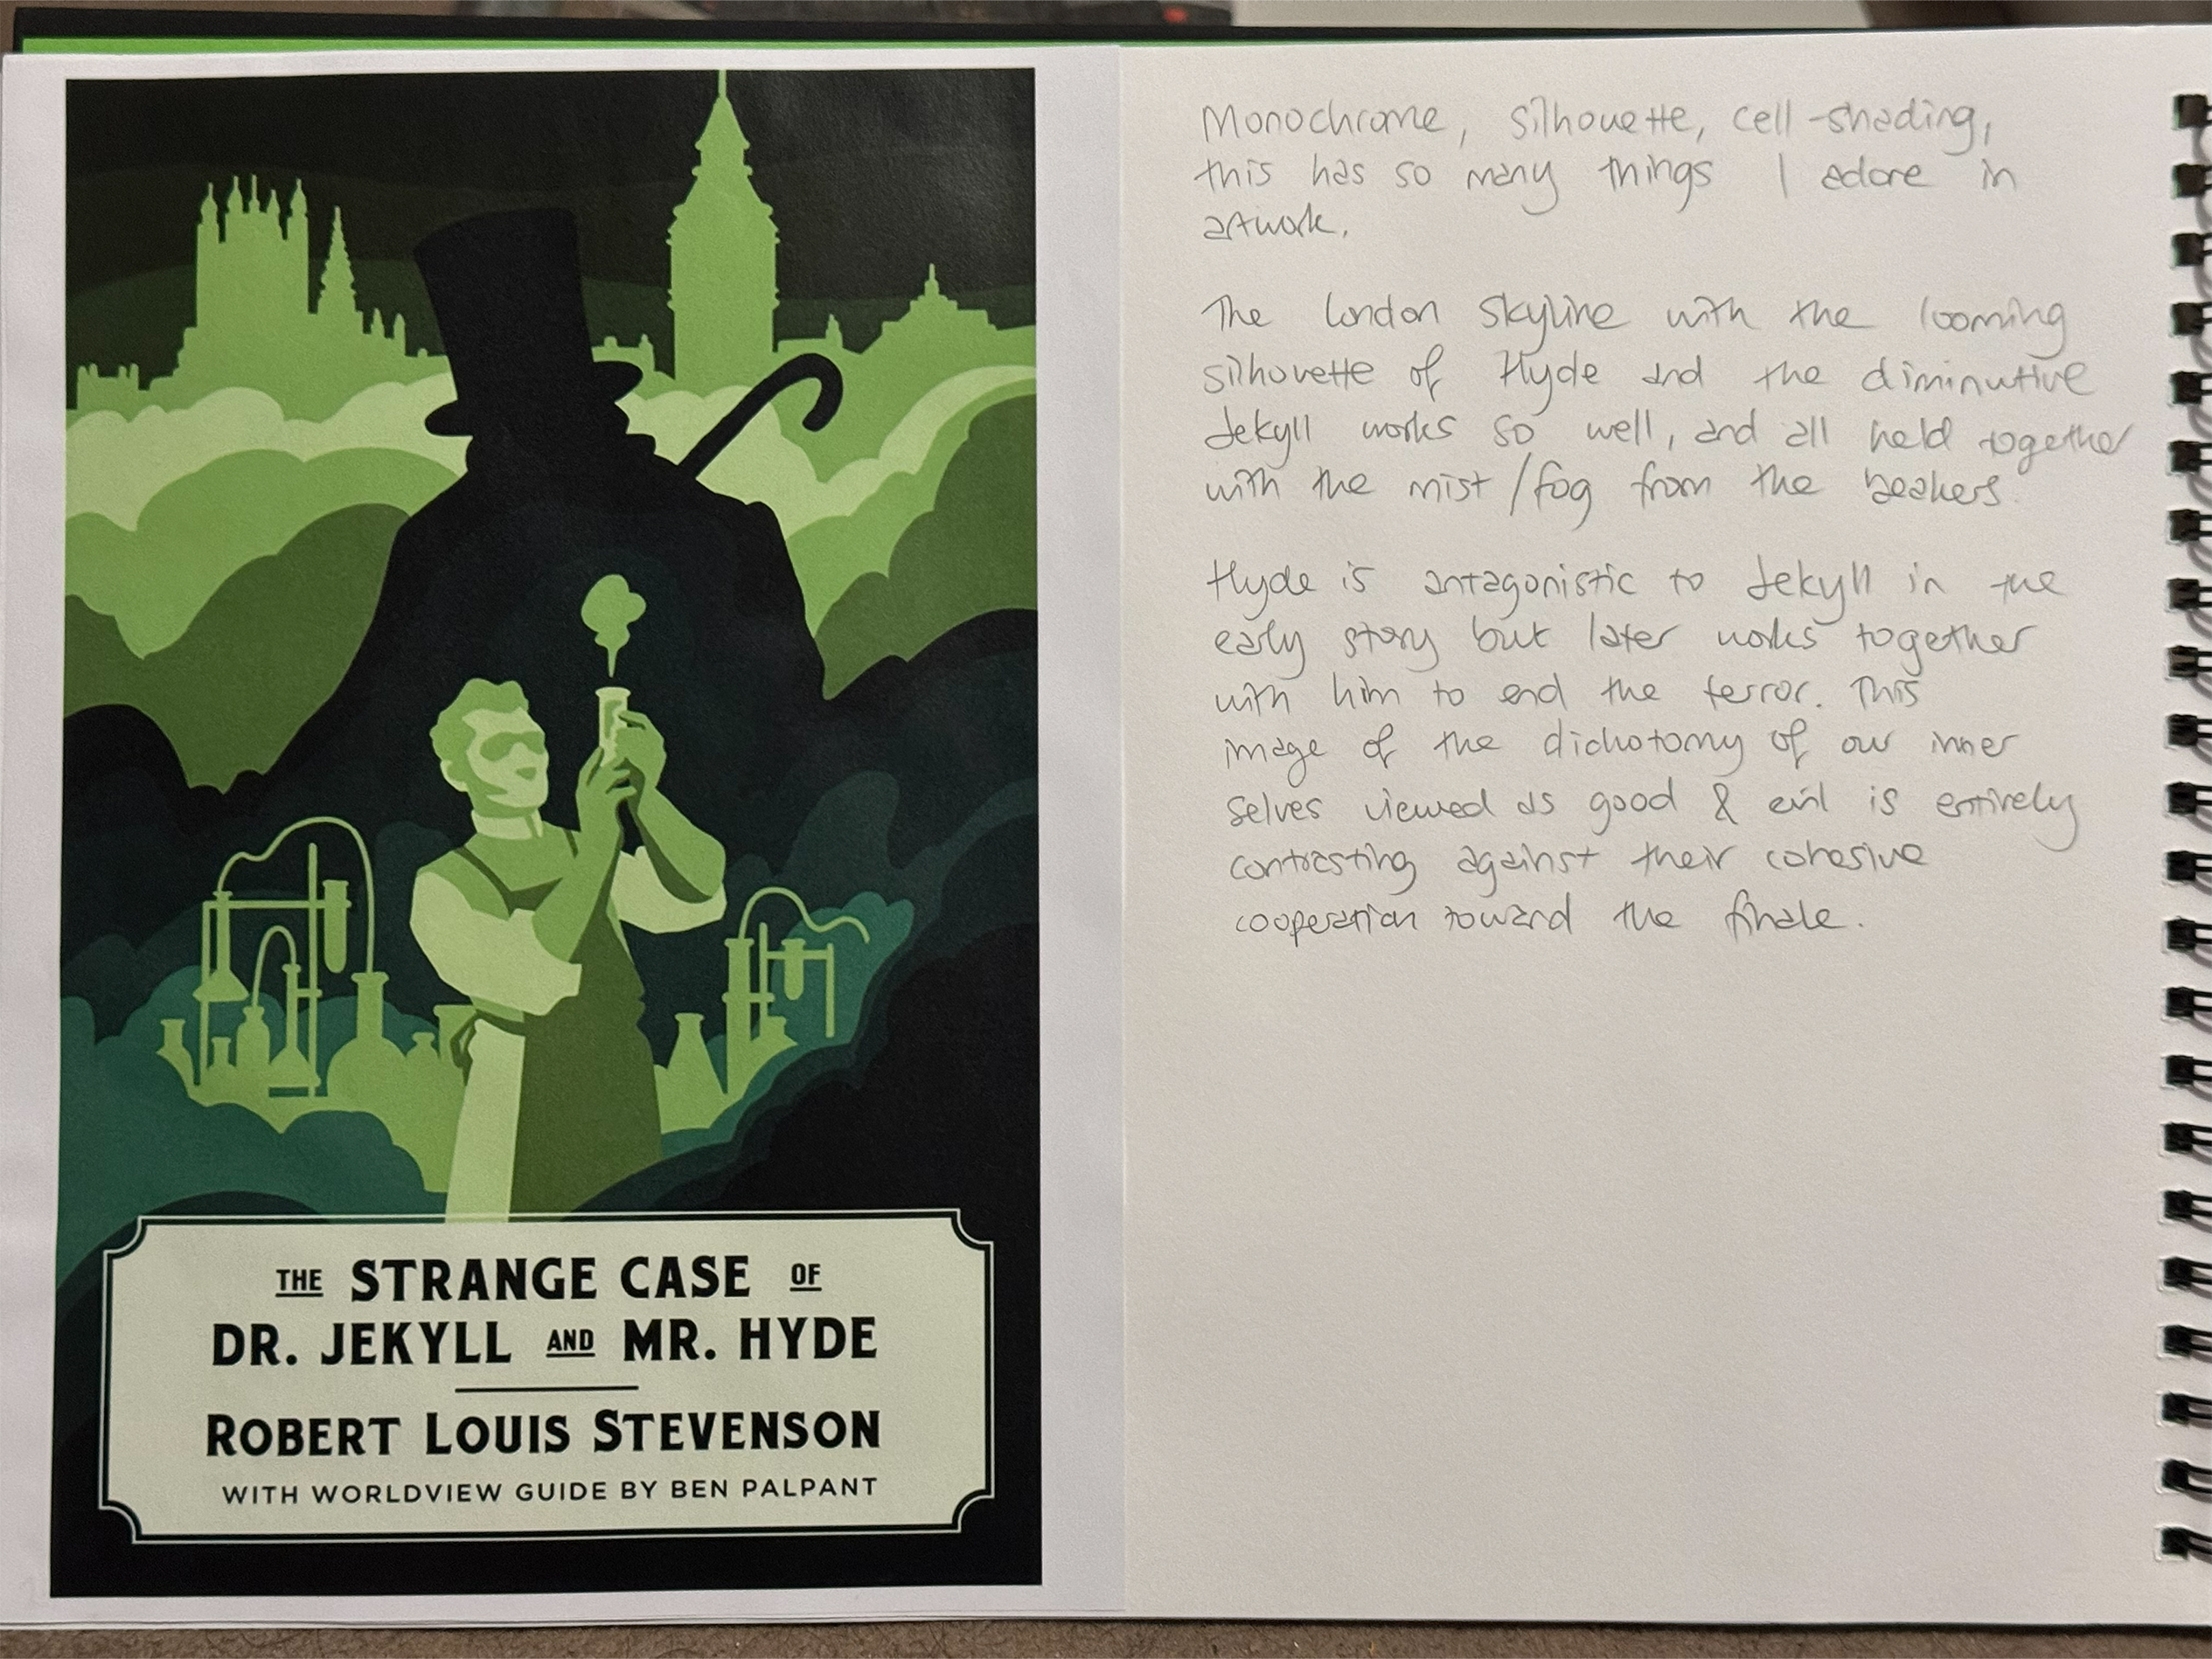 THE STRANGE CASE OF
DR. JEKYLL AND MR. HYDE
ROBERT LOUIS STEVENSON
WITH WORLDVIEW GUIDE BY BEN PALPANT
Monochrome, silhouette, cell-shading,
this has so many things I adore in
artwork.
The London skyline with the looming
silhouette of Hyde and the diminutive
Jekyll works so well, and all held together
with the mist/fog from the beakers.
Hyde is antagonistic to Jekyll in the
early story but later works together
with him to end the terror. This
image of the dichotomy of our inner
selves viewed as good & evil is entirely
contrasting against their cohesive
cooperation toward the finale.